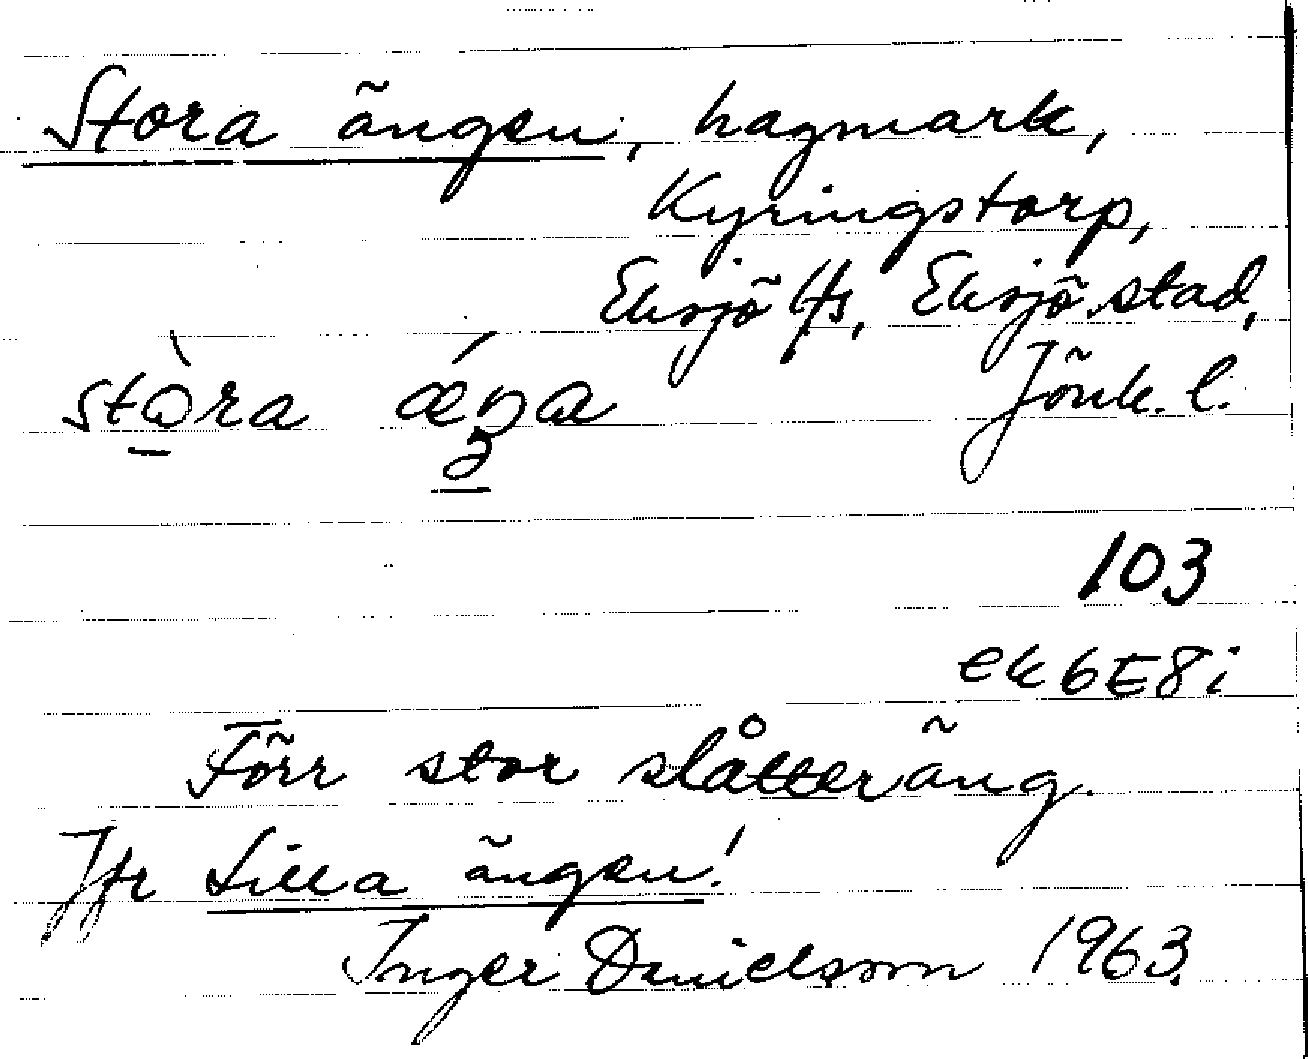 Stora ängen, hagmark,
Kyringstorp,
Eksjö lfs, Eksjö stad,
Jönk. l.
stòra ǽŋa
103
ek 6E8i
Förr stor slåtteräng.
Jfr Lilla ängen!
Inger Danielsson 1963.